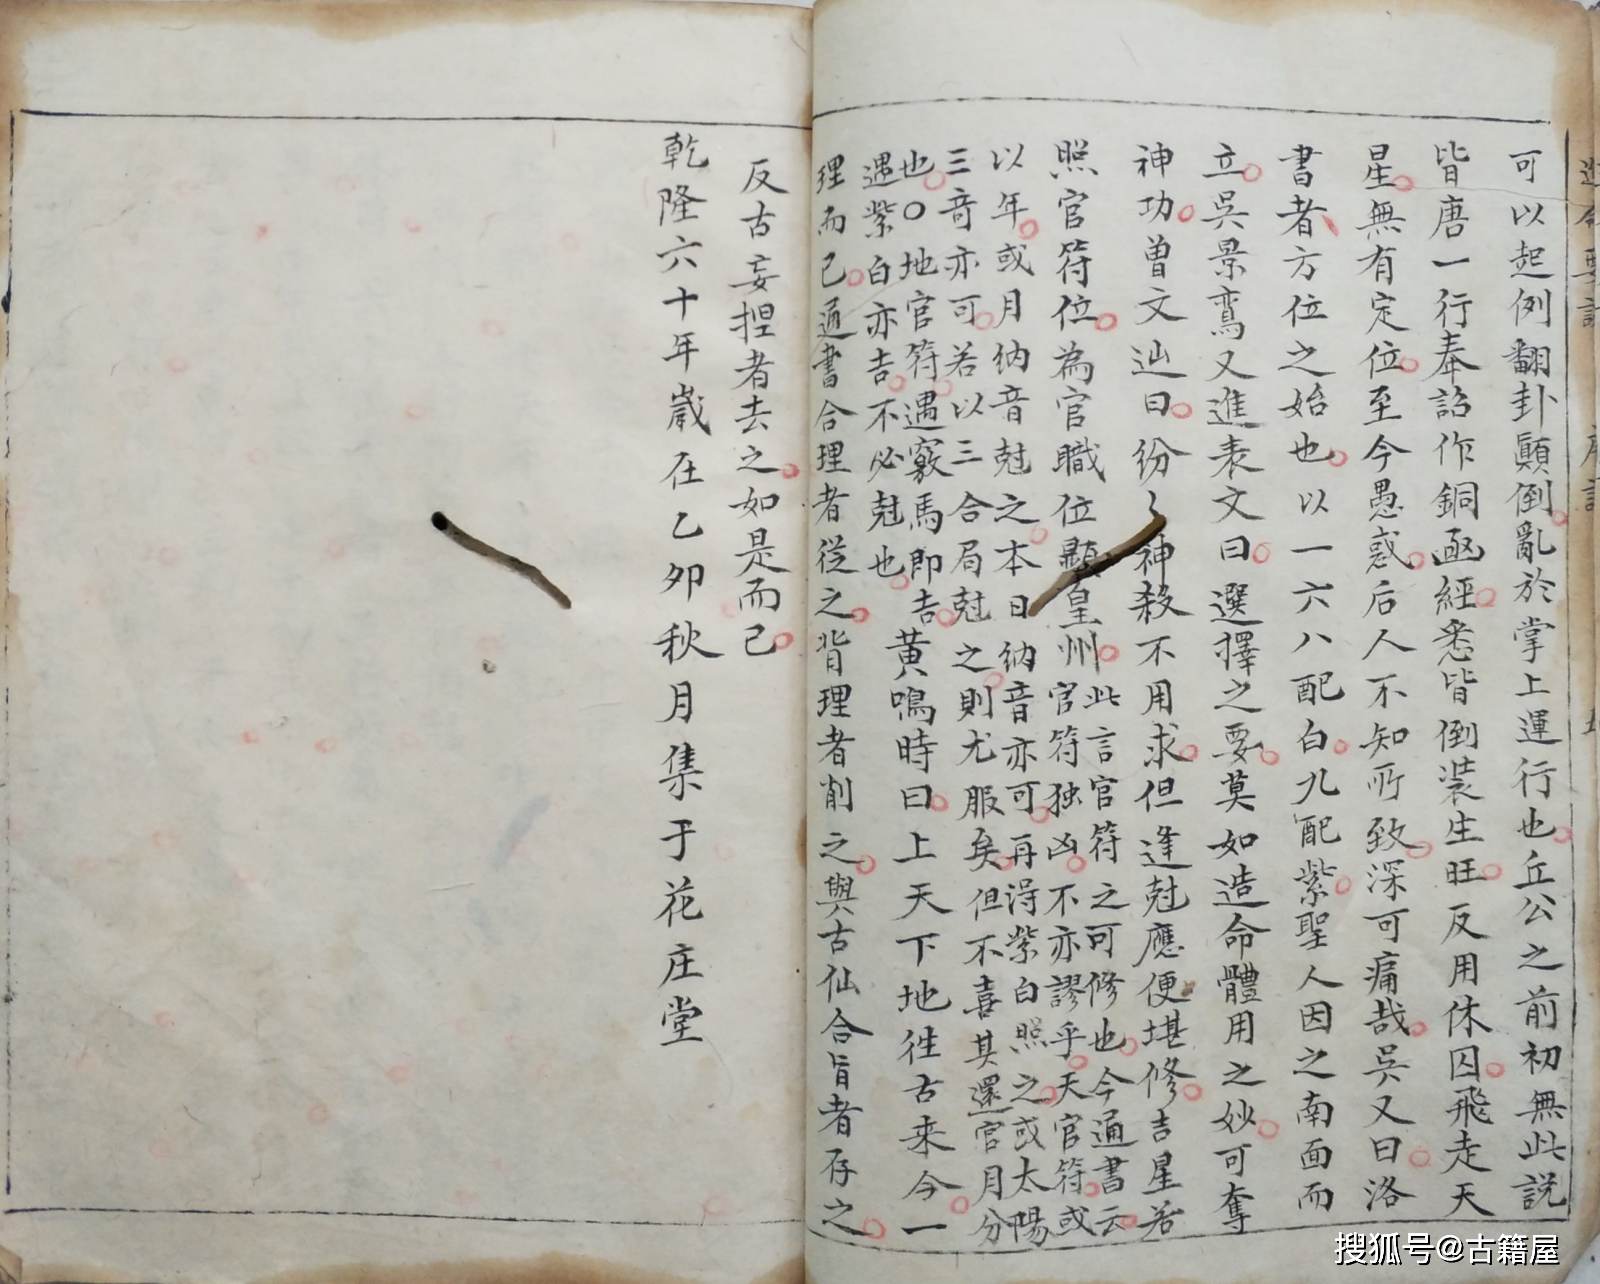 可以起例翻卦顛倒亂於掌上運行也丘公之前初無此説
皆唐一行奉詔作銅函經悉皆倒装生旺反用休囚飛走天
星無有定位至今愚惑后人不知所致深可痛哉吳又曰洛
書者方位之始也以一六八配白九配紫聖人因之南面而
立吳景鸾又進表文曰選擇之要莫如造命體用之妙可奪
神功曾文辿曰紛〻神殺不用求但逢尅應便堪修吉星若
照官符位為官職位顯皇州
此言官符之可修也今通書云
官符独凶不亦謬乎天官符或
以年或月納音尅之本日納音亦可再淂紫白照之或太陽
三竒亦可若以三合局尅之則尤服矣但不喜其還官月分
也〇地官符遇竅馬即吉
遇紫白亦吉不必尅也
黄鳴時曰上天下地徃古来今一
理而已通書合理者從之背理者削之與古仙合旨者存之
反古妄揑者去之如是而已
乾隆六十年歲在乙夘秋月集于花庄堂
搜狐号@古籍屋